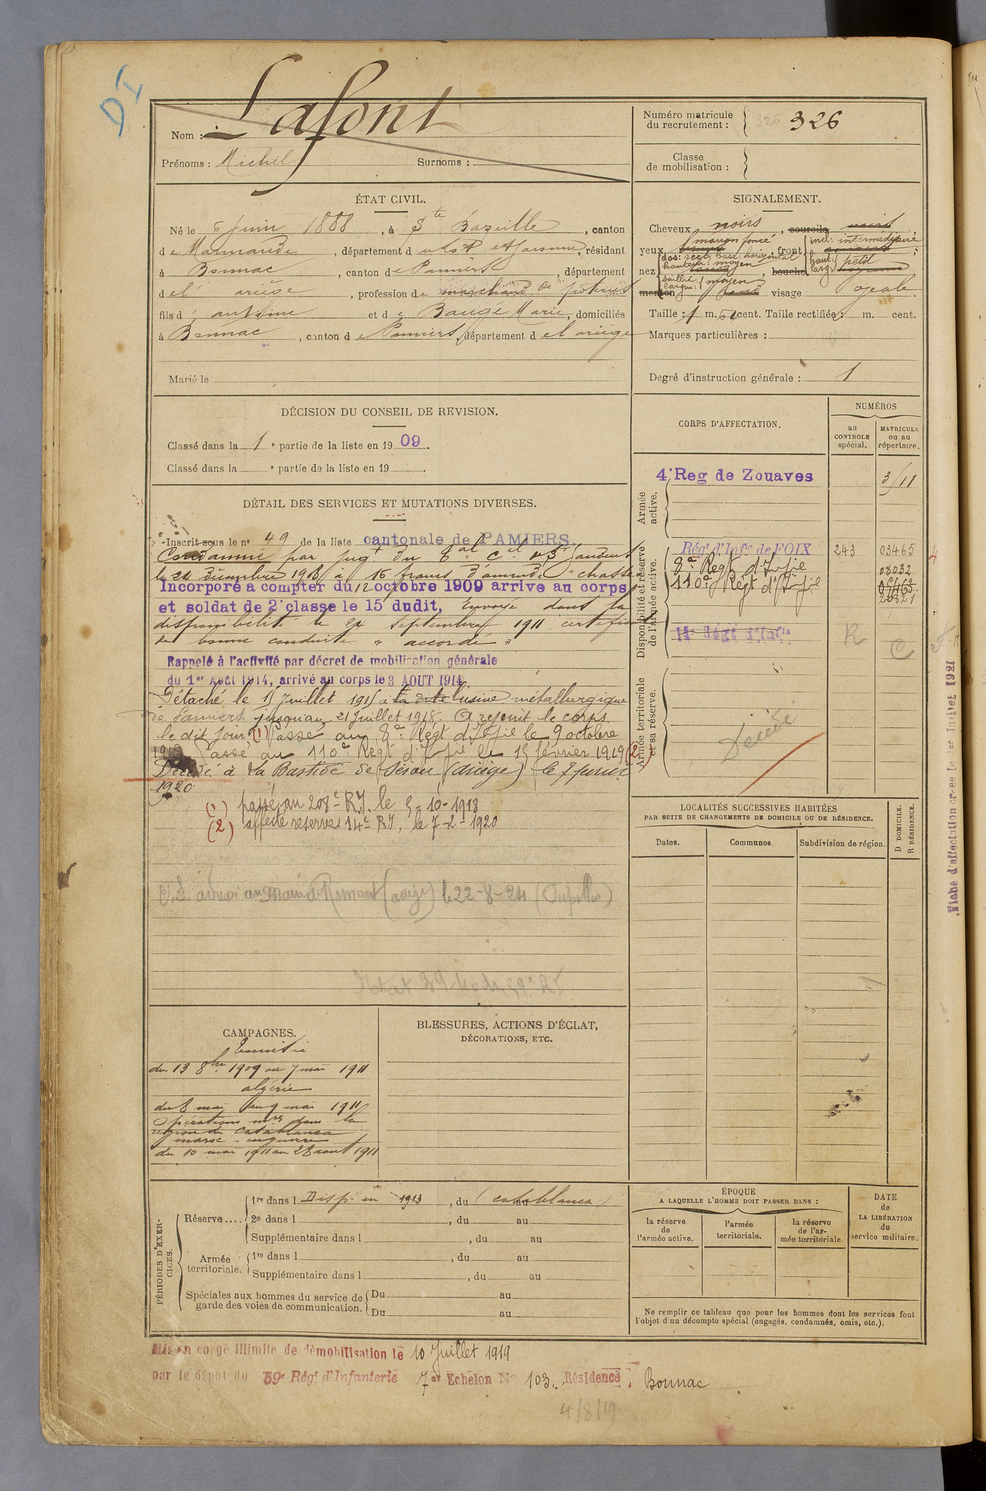 DI
Nom : Lafont
Prénoms : Michel Surnoms :
Numéro matricule du recrutement : 326 326
Classe de mobilisation :
ÉTAT CIVIL.
Né le 6 Juin 1888, à Ste Bazeille, canton
de Marmande, département du Lot et Garonne, résidant
à Bonnac, canton de Pamiers, département
de l'ariège, profession de marchand de
fils d'antoine et de Baugé Marie, domiciliés
à Bonnac, canton de Pamiers, département de l'ariège
Marié le
SIGNALEMENT.
Cheveux noirs, sourcils noirs
yeux marron foncé, front incl: intermédiaire ;
nez dos: rect. base horizontal hauteur: moyen, bouche haut: larg: petit
saillie largeur: moyen
menton rond visage ovale
Taille : 1 m. 51 cent. Taille rectifiée : m. cent.
Marques particulières :
Degré d'instruction générale : 1
DÉCISION DU CONSEIL DE REVISION.
Classé dans la 1e partie de la liste en 1909.
Classé dans la e partie de la liste en 19 .
CORPS D'AFFECTATION.
NUMÉROS
au CONTROLE spécial.
MATRICULE ou au répertoire.
Armée active.
4e Reg de Zouaves 3/11
Disponibilité et réserve de l'armée active.
Régt d'Infie de FOIX 243 03465
8e Régt d'Infie 08032
110e Régt d'Infie
20821
14e Régt d'Infie R C
Armée territoriale et sa réserve.
Décédé
DÉTAIL DES SERVICES ET MUTATIONS DIVERSES.
Inscrit sous le n° 49 de la liste cantonale de PAMIERS.
Condamné par jugt du
le 24 décembre 1908 à 16 francs d'amende chasse
Incorporé à compter du 12 octobre 1909 arrive au corps
et soldat de 2e classe le 15 dudit, Envoyé dans la
disponibilité le 24 septembre 1911 certificat
de bonne conduite "accordé"
Rappelé à l'activité par décret de mobilisation générale
du 1er Août 1914, arrivé au corps le 3 AOUT 1914
Détaché le 15 Juillet 1915 à la dite l'usine métallurgique
de Pamiers jusqu'au 21 Juillet 1918. A rejoint le corps
le dit jour (1) Passé au 8e Régt d'Infie le 9 octobre
1918 Passé au 110e Régt d'Infie le 15 février 1919 (2)
Décédé à La Bastide de Sérou (Ariège) le 7 février
1920
(1) passé au 208e RI. le 5-10-1918
(2) affecté réserve 14e RI. le 7-2-1920
le 22-8-24
Fiche d'affectation créée le 1er Juillet 1927
LOCALITÉS SUCCESSIVES HABITÉES
PAR SUITE DE CHANGEMENTS DE DOMICILE OU DE RÉSIDENCE.
Dates. Communes. Subdivision de région. D DOMICILE. R RÉSIDENCE.
CAMPAGNES.
Tunisie
du 13 8bre 1909 au 7 mai 1911
algérie
du 8 mai au 9 mai 1911
Opérations mres dans la
région de Casablanca
Maroc - en guerre
du 10 mai 1911 au 28 aout 1911
BLESSURES, ACTIONS D'ÉCLAT,
DÉCORATIONS, ETC.
PÉRIODES D'EXERCICES.
Réserve....
1re dans l Disp. en 1913, du (casablanca) au
2e dans l , du au
Supplémentaire dans l , du au
Armée territoriale.
1re dans l , du au
Supplémentaire dans l , du au
Spéciales aux hommes du service de garde des voies de communication.
Du au
Du au
ÉPOQUE
A LAQUELLE L'HOMME DOIT PASSER DANS :
la réserve de l'armée active.
l'armée territoriale.
la réserve de l'armée territoriale.
DATE de LA LIBÉRATION du service militaire.
Ne remplir ce tableau que pour les hommes dont les services font
l'objet d'un décompte spécial (engagés, condamnés, omis, etc.).
Mis en congé illimité de démobilisation le 10 Juillet 1919
par le dépôt du 59e Régt d'Infanterie 7e Echelon N° 103. Résidence : Bonnac
4/8/19